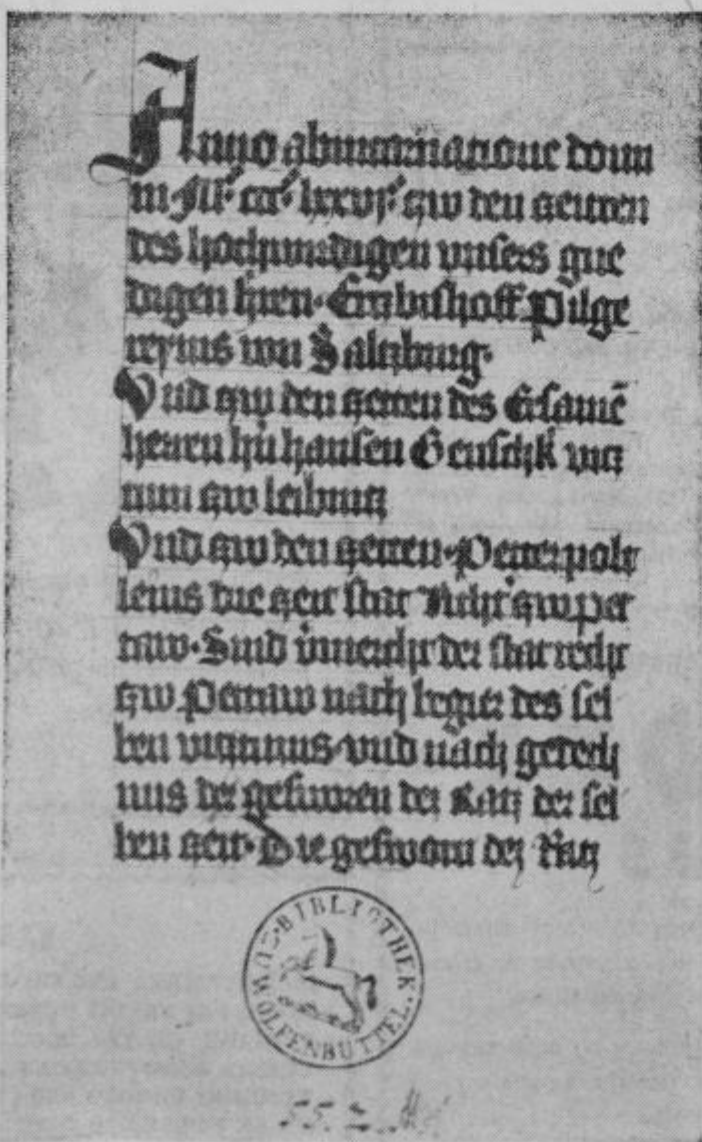 Anno abincarnacione domi
ni Mᵒ cccᵒ lxxviᵒ czw den czeiten
des hochwirdigen vnsers gne
digen hren· Erczbischoff Pilge
reyms von Salczburg·
Vnd czw den czeiten des Ersamē
herren hṅ hansen Genschk vicz
tum czw leibnicz
Vnd czw den czeiten· Petter
leins die czeit stat Richtˀ czw pet
taw· Sind vinerehr der stat recht
czw Pettaw nach beger des sel
ben viczums vnd nach gedech
nus der gesworen der Racz der sel
ben czeit· Die gesworn der Racz
BIBLIOTHEK
WOLFENBÜTTEL
55. 2.